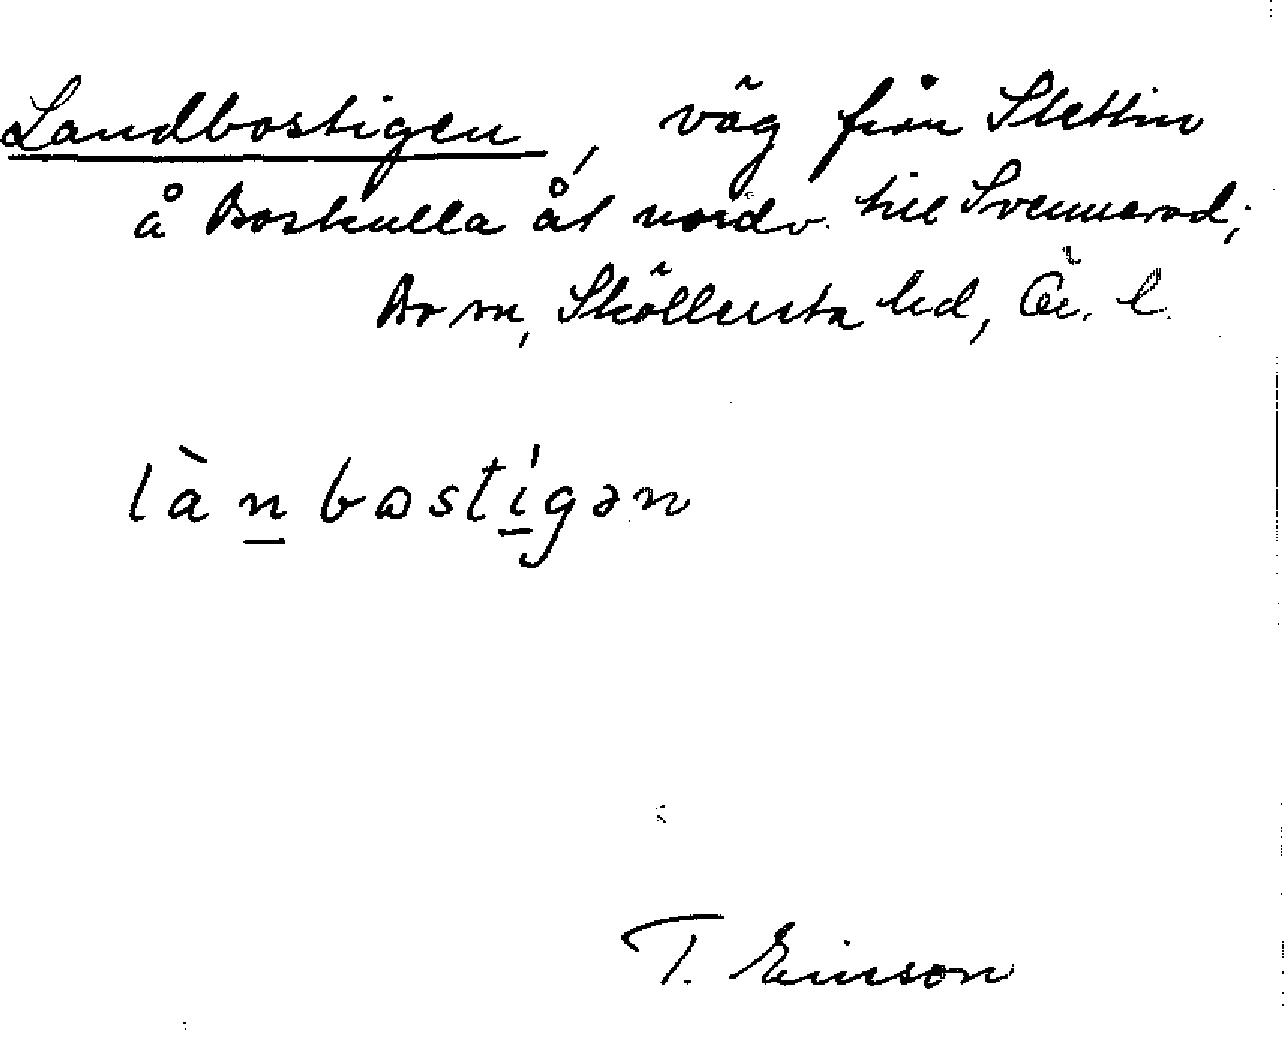 Landbostigen, väg från Stettin
å Boskulla åt nordv. till Svennerod;
Bo sn, Sköllersta hd, Ör. l.
lànbostígən
T. Ericson